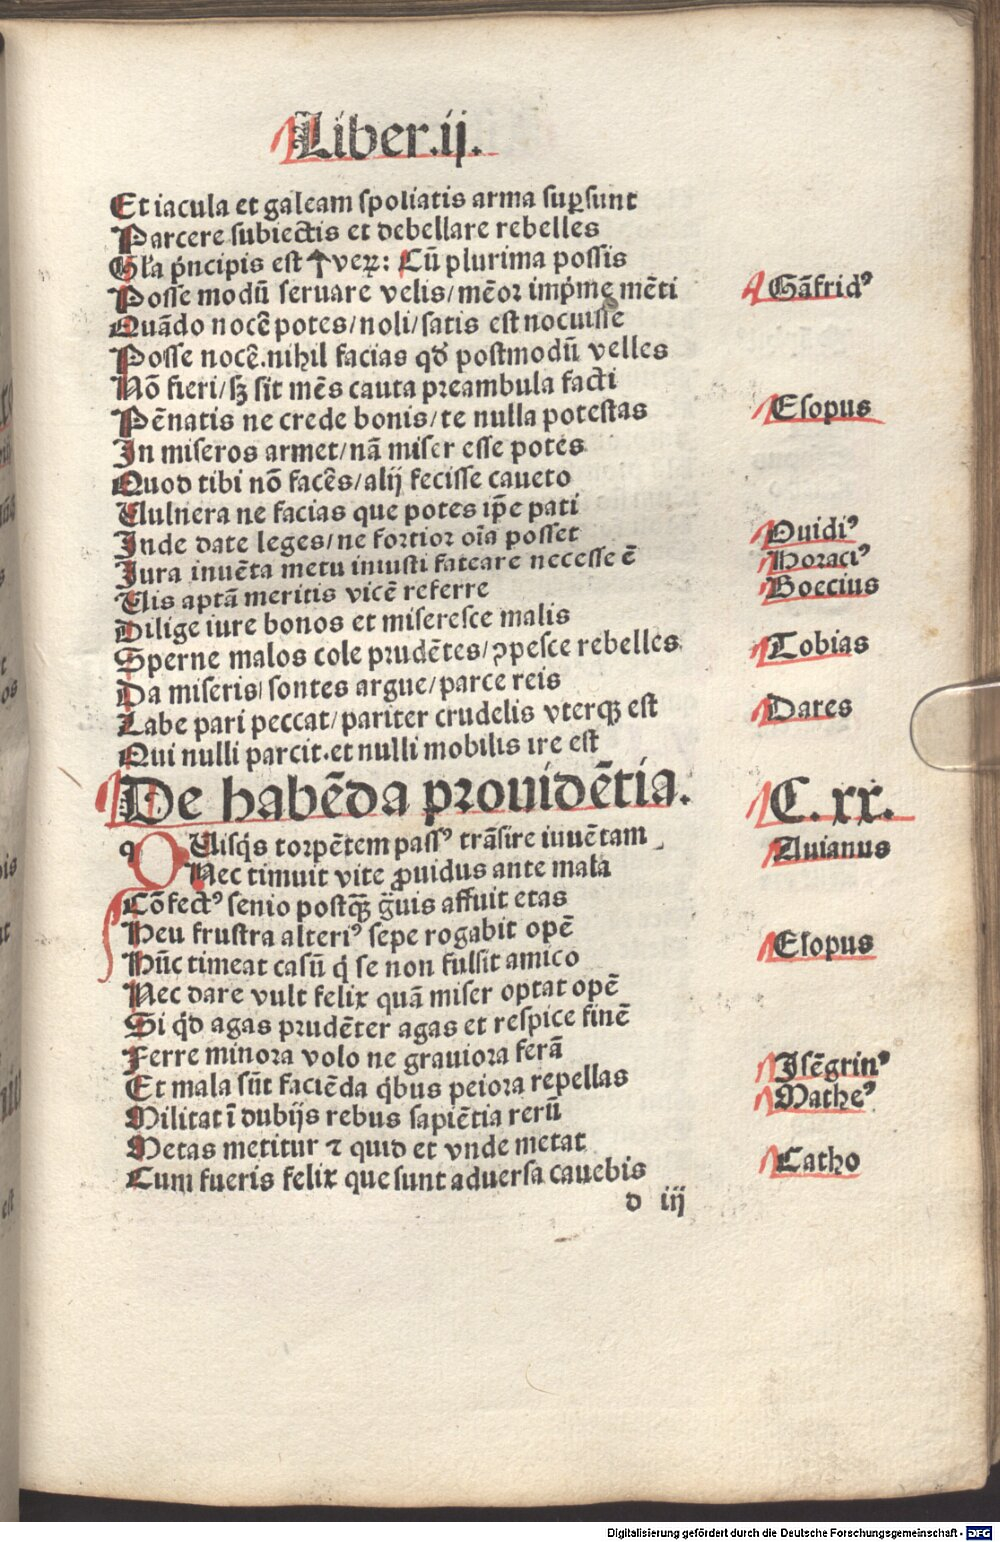 Liber.ij.
Et iacula et galeam ſpoliatis arma ſuꝑſunt
Parcere ſubiectis et debellare rebelles
Gl̄a pͥncipis eſt veꝝ: Cū plurima poſſis
Poſſe modū ſeruare velis/mēoꝛ impͥme mēti
Gāfridꝰ
Quādo nocē potes/noli/ſatis eſt nocuiſſe
Poſſe nocē.nihil facias qđ poſtmodū velles
Nō fieri/ſꝫ ſit mēs cauta pꝛeambula facti
Pēnatis ne crede bonis/te nulla poteſtas
Eſopus
In miſeros armet/nā miſer eſſe potes
Quod tibi nō facēs/alij feciſſe caueto
Vulnera ne facias que potes ip̄e pati
Inde date leges/ne foꝛtioꝛ oīa poſſet
Ouidiꝰ
Jura inuēta metu iniuſti fateare neceſſe ē
Hoꝛaciꝰ
Vis aptā meritis vicē referre
Boecius
Dilige iure bonos et miſereſce malis
Sperne malos cole pꝛudētes/ꝯpeſce rebelles
Tobias
Da miſeris/ſontes argue/parce reis
Labe pari peccat/pariter crudelis vterqꝫ eſt
Dares
Qui nulli parcit.et nulli mobilis ire eſt
De habēda pꝛouidētia.
C.xx.
q Uiſqͥs toꝛpētem paſſꝰ trāſire iuuētam
Auianus
Nec timuit vite ꝓuidus ante mala
Cōfectꝰ ſenio poſtqꝫ gͣuis affuit etas
Heu fruſtra alteriꝰ ſepe rogabit opē
Hūc timeat caſū qͥ ſe non fulſit amico
Eſopus
Nec dare vult felix quā miſer optat opē
Si qͥd agas pꝛudēter agas et reſpice finē
Ferre minoꝛa volo ne grauioꝛa ferā
Iſēgrinꝰ
Et mala ſūt faciēda qͥbus peioꝛa repellas
Militat ī dubijs rebus ſapiētia rerū
Matheꝰ
Metas metitur ⁊ quid et vnde metat
Cum fueris felix que ſunt aduerſa cauebis
Catho
d iij
Digitalisierung gefördert durch die Deutsche Forschungsgemeinschaft - DFG